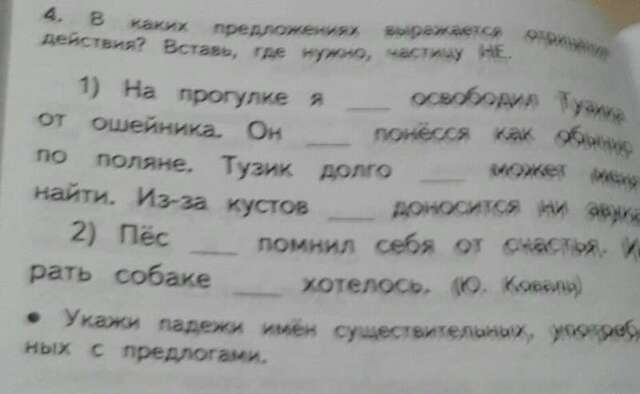 4. В каких предложениях выражается отрицание
действия? Вставь, где нужно, частицу НЕ.
1) На прогулке я ___ освободил Тузика
от ошейника. Он ___ понёсся как обычно
по поляне. Тузик долго ___ может меня
найти. Из-за кустов ___ доносится ни звука.
2) Пёс ___ помнил себя от счастья.
рать собаке ___ хотелось. (Ю. Коваль)
• Укажи падежи имён существительных, употреб
ных с предлогами.